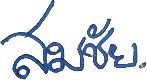 สมชัย.